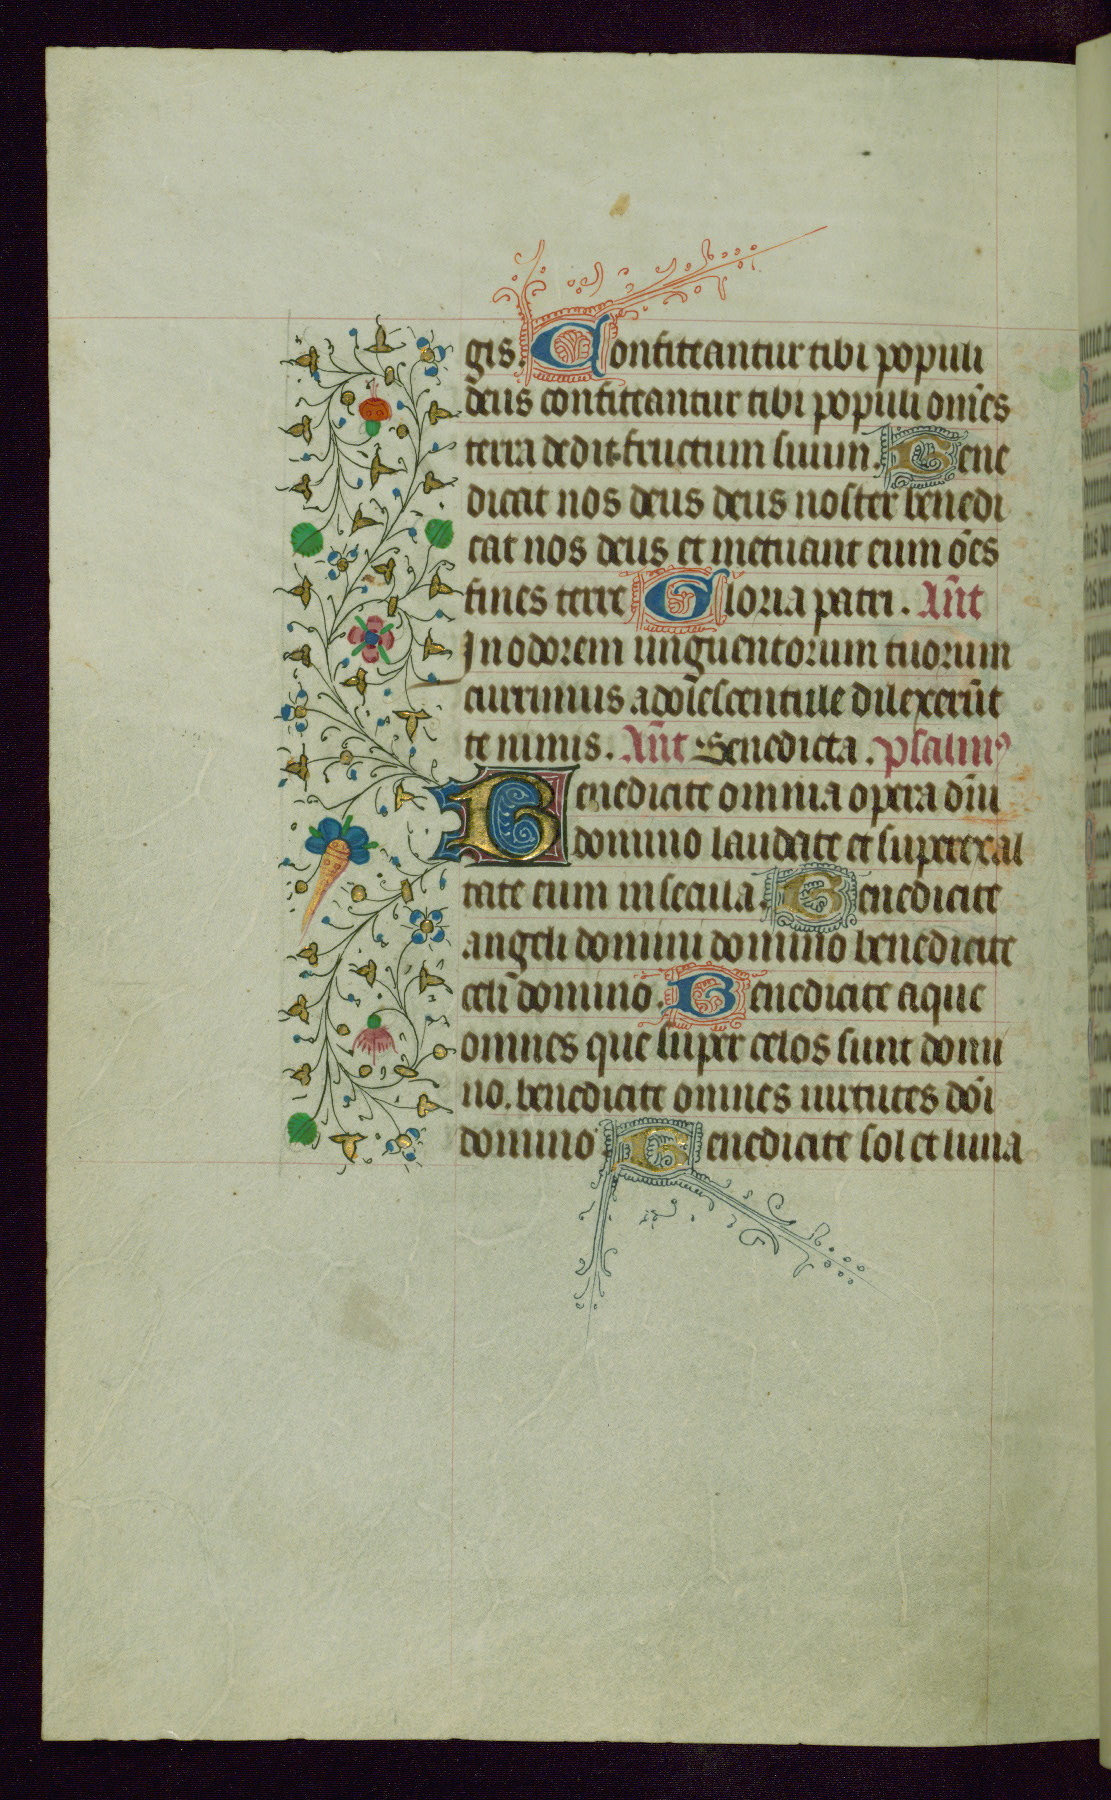 gis. Confiteantur tibi populi
deus confiteantur tibi populi om̄es
terra dedit fructum suum. Bene
dicat nos deus deus noster benedi
cat nos deus et metuant eum o͞es
fines terre Gloria patri. An̄t
In odorem unguentorum tuorum
currimus adol̄escentule dilexerūt
te nimis. An̄t Benedicta. psalmꝰ
Benedicite omnia opera dn̄i
domino laudate et superexal
tate eum in secula. Benedicite
angeli domini domino benedicite
celi domino. Benedicite aque
omnes que super celos sunt domi
no. benedicite omnes uirtutes dōi
domino Benedicite sol et luna